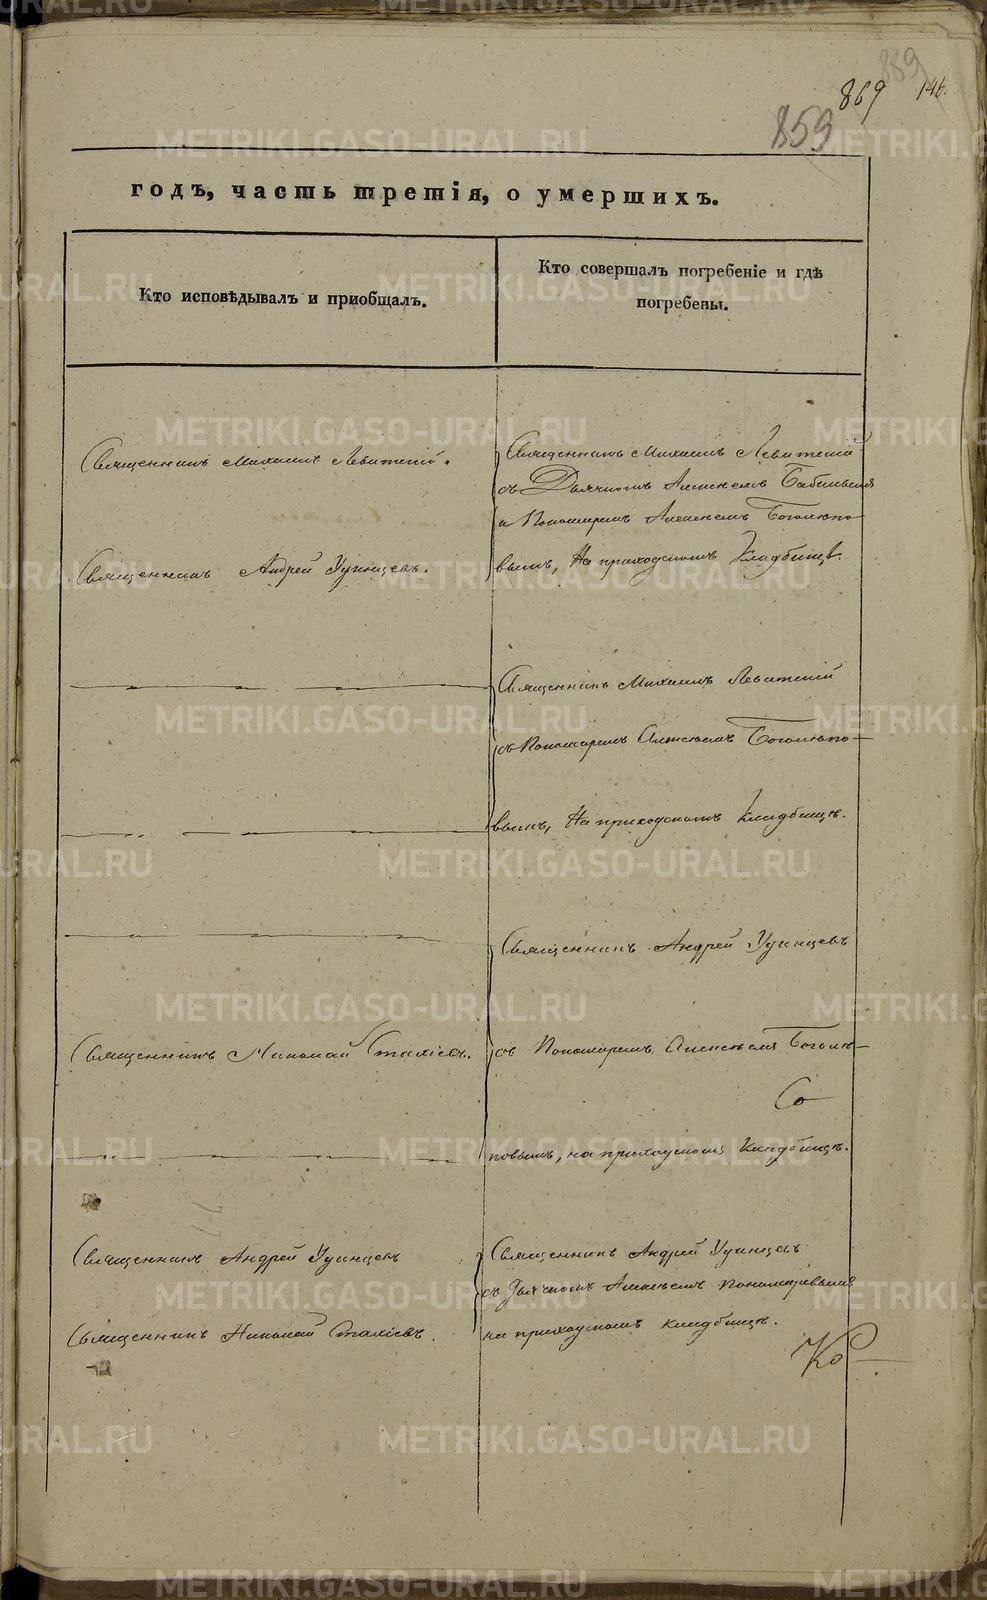 889
869
146.
859
годъ, часть третія, о умершихъ.
Кто исповѣдывалъ и приобщалъ.
Кто совершалъ погребеніе и гдѣ
погребены.
Священникъ Михаилъ Левитскій.
Священникъ Андрей Удинцевъ.
Священникъ Николай Стахіевъ.
Священникъ Андрей Удинцевъ
Священникъ Николай Стахіевъ.
Священникъ Михаилъ Левитскій
съ Дьячкомъ Алексѣемъ
и Пономаремъ Алексѣемъ Боголюпо-
вымъ, На приходскомъ Кладбищѣ.
Священникъ Михаилъ Левитскій
съ Пономаремъ Алексѣемъ Боголюпо-
вымъ, На приходскомъ Кладбищѣ.
Священникъ Андрей Удинцевъ
съ Пономаремъ Алексѣемъ Боголю-
повымъ, на приходскомъ Кладбищѣ.
Со
Священникъ Андрей Удинцевъ
съ Дьячкомъ Алексѣемъ Пономаревымъ
на приходскомъ кладбищѣ.
Ко
METRIKI.GASO-URAL.RU